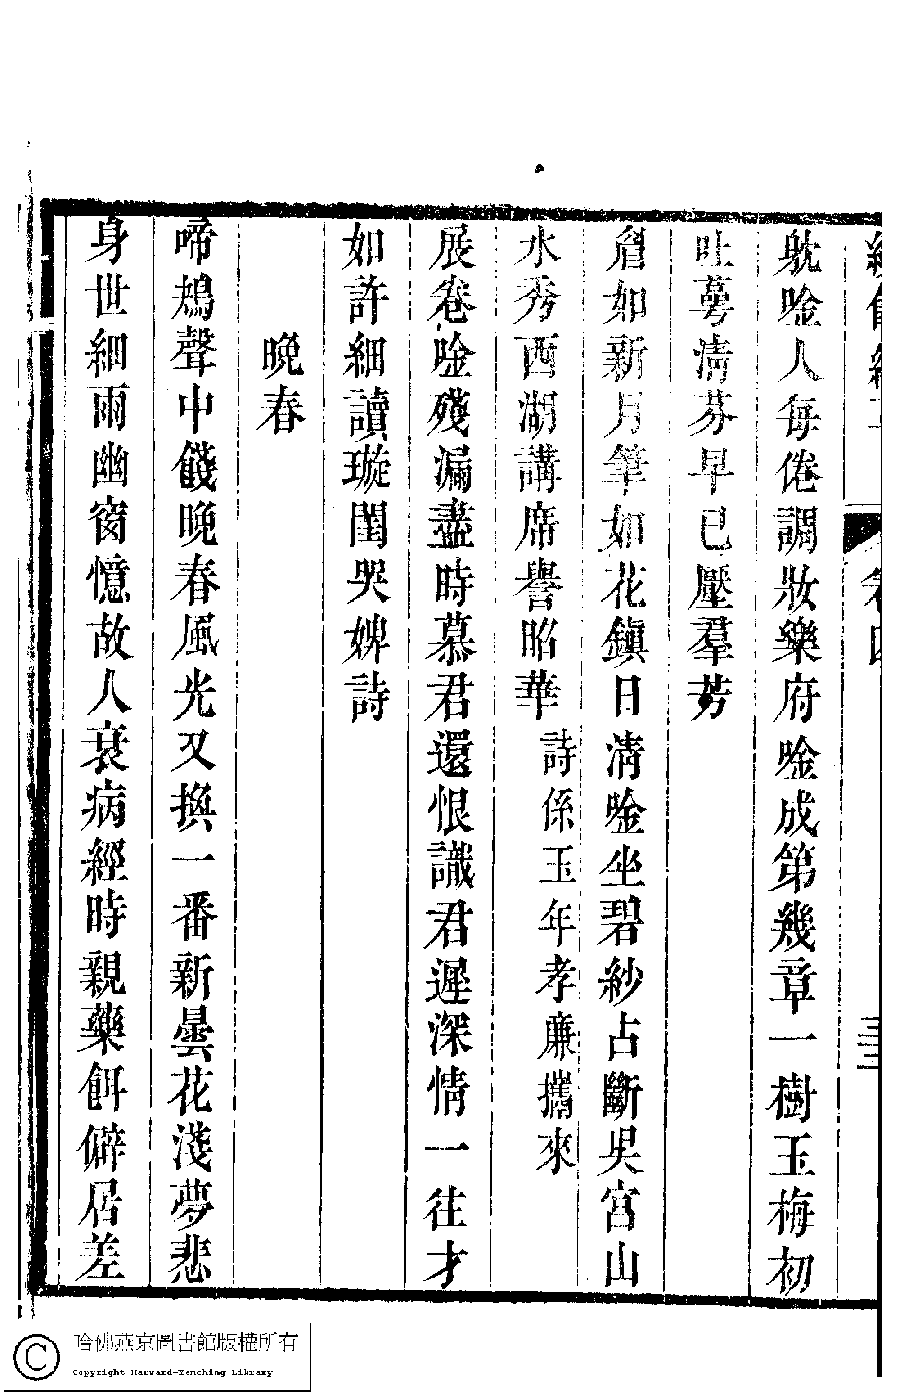 躭唫人每倦調妝樂府唫成第幾章一樹玉梅初
吐萼清芬早已壓羣芳
眉如新月筆如花鎭日清唫坐碧紗占斷吳宮山
水秀西湖講席譽昭華詩係玉年孝廉攜來
展卷唫殘漏盡時慕君還恨識君遲深情一往才
如許細讀璇閨哭婢詩
晚春
啼鴂聲中餞晚春風光又換一番新曇花淺夢悲
身世細雨幽窗憶故人衰病經時親藥餌僻居差
哈佛燕京圖書館版權所有
Copyright Harvard-Yenching Library